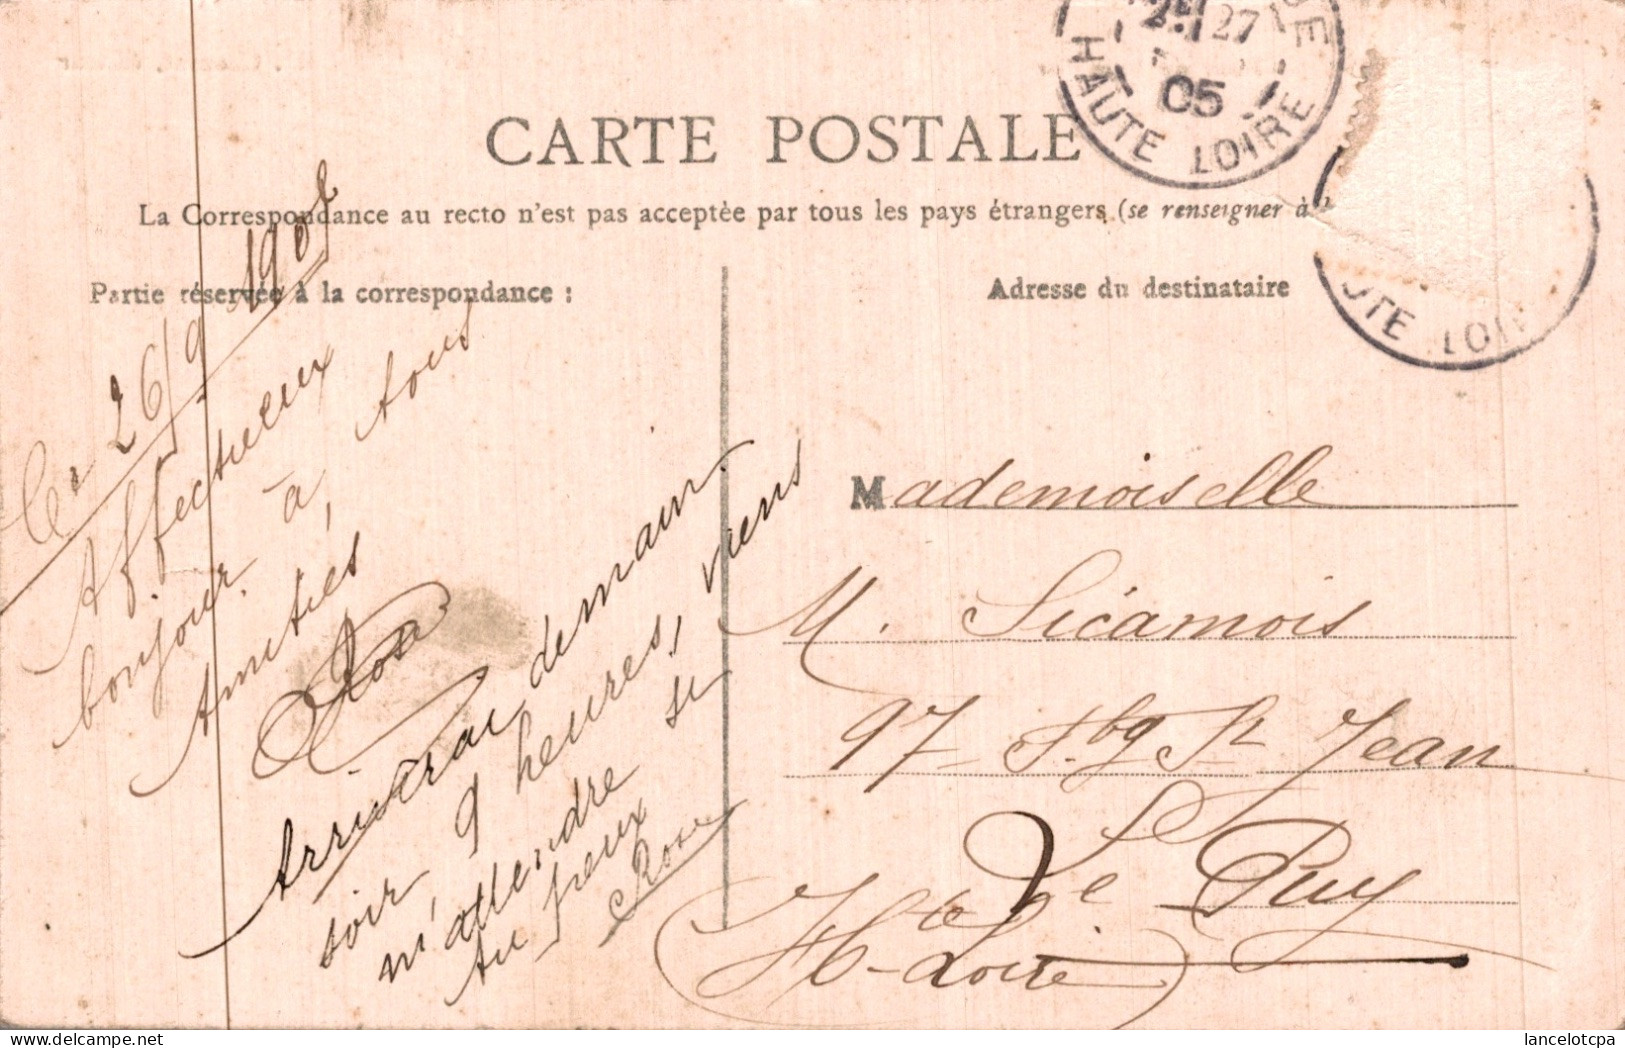 27
05
HAUTE LOIRE
CARTE POSTALE
La Correspondance au recto n'est pas acceptée par tous les pays étrangers (se renseigner à
Partie réservée à la correspondance :
Adresse du destinataire
UTE LOI
Ce 26/9 1905
Affectueux
bonjour à tous
Amitiés
Rosa
Arriverai demain
soir 9 heures, viens
m'attendre si
tu peux
Rose
Mademoiselle
M. Sicamois
97 F.bg St Jean
Le Puy
(Hte-Loire)
lancelotcpa